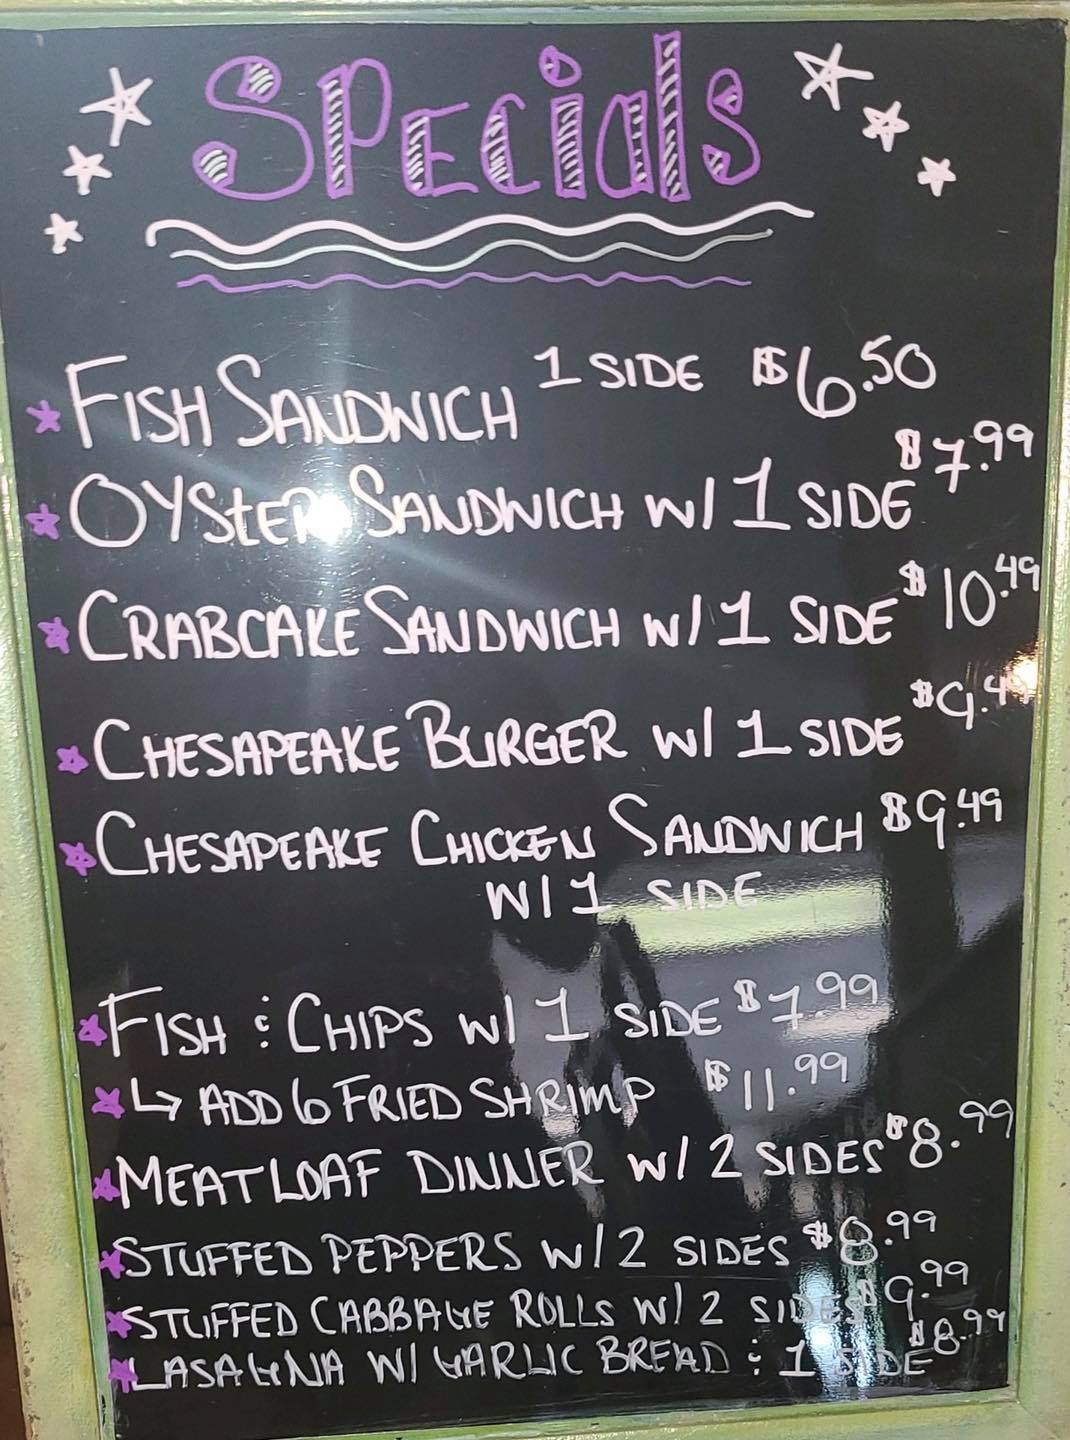 Specials
Fish Sandwich 1 Side $6.50
Oyster Sandwich w/ 1 Side $7.99
Crabcake Sandwich w/ 1 Side $10.49
Chesapeake Burger w/ 1 Side $9.49
Chesapeake Chicken Sandwich $9.49
w/ 1 Side
Fish & Chips w/ 1 Side $7.99
↳ Add 6 Fried Shrimp $11.99
Meatloaf Dinner w/ 2 Sides $8.99
Stuffed Peppers w/ 2 Sides $8.99
Stuffed Cabbage Rolls w/ 2 Sides $9.99
Lasagna w/ Garlic Bread & 1 Side $8.99